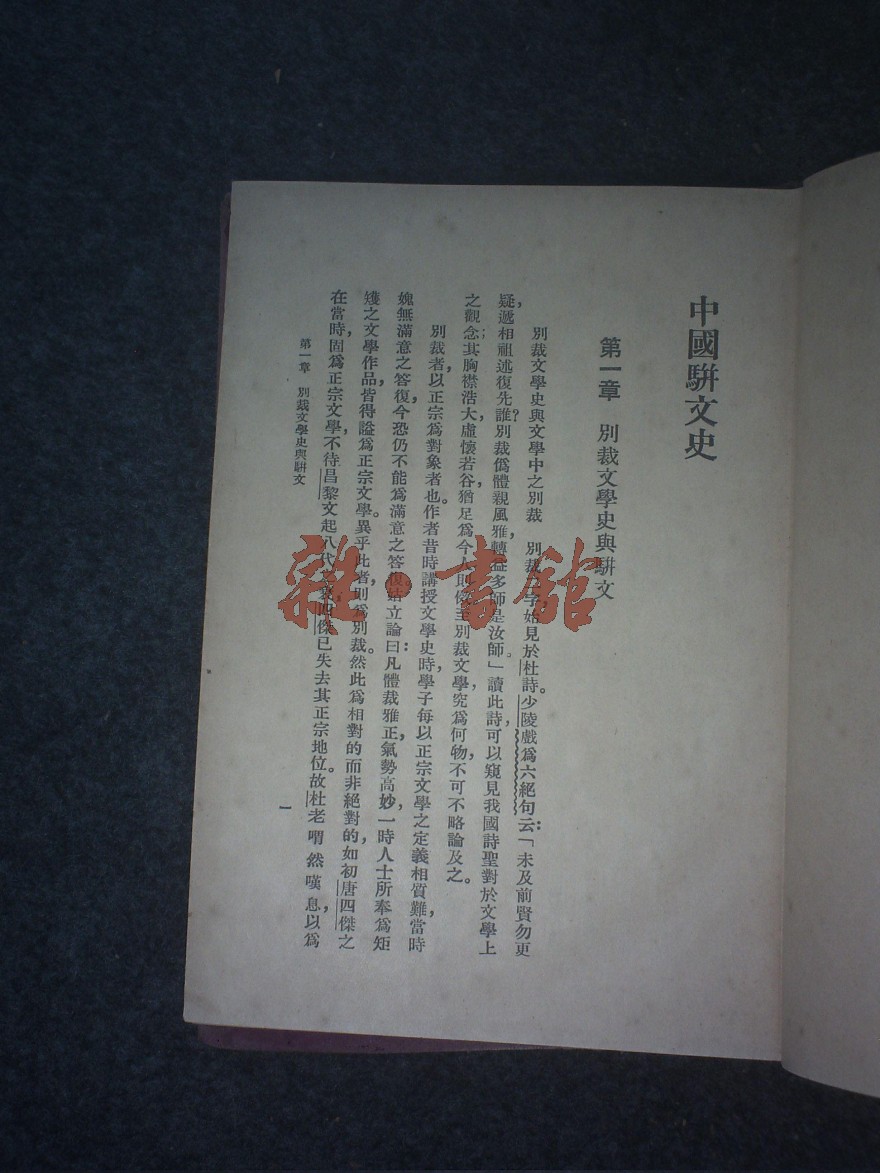 中國駢文史
第一章　別裁文學史與駢文
別裁文學史與文學中之別裁　別裁二字始見於杜詩。少陵戲爲六絕句云：「未及前賢勿更
疑，遞相祖述復先誰？別裁僞體親風雅，轉益多師是汝師。」讀此詩，可以窺見我國詩聖對於文學上
之觀念；其胸襟浩大，虛懷若谷，猶足爲今人則傚。至別裁文學，究爲何物，不可不略論及之。
別裁者，以正宗爲對象者也。作者昔時講授文學史時，學子每以正宗文學之定義相質難，當時
媿無滿意之答復，今恐仍不能爲滿意之答復。姑立論曰：凡體裁雅正，氣勢高妙，一時人士所奉爲矩
矱之文學作品，皆得謚爲正宗文學。異乎此者，則爲別裁。然此爲相對的而非絕對的，如初唐四傑之
在當時，固爲正宗文學，不待昌黎文起八代之衰，四傑已失去其正宗地位。故杜老喟然嘆息，以爲
第一章　別裁文學史與駢文
一
雜·書館